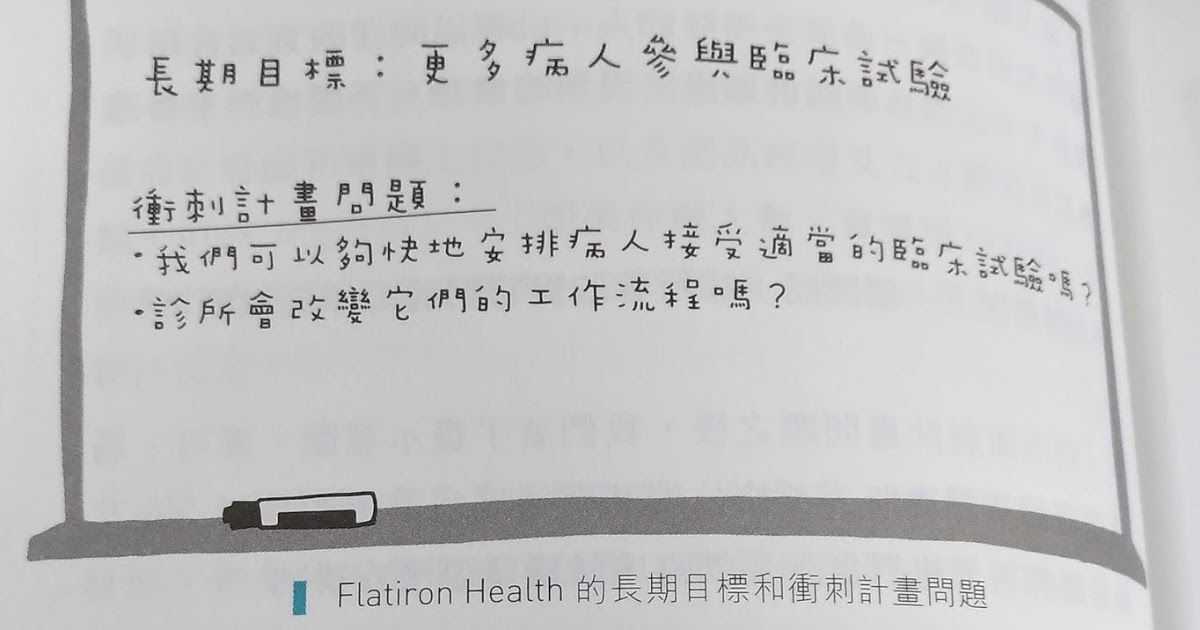 長期目標：更多病人參與臨床試驗
衝刺計畫問題：
·我們可以夠快地安排病人接受適當的臨床試驗嗎？
·診所會改變它們的工作流程嗎？
Flatiron Health 的長期目標和衝刺計畫問題